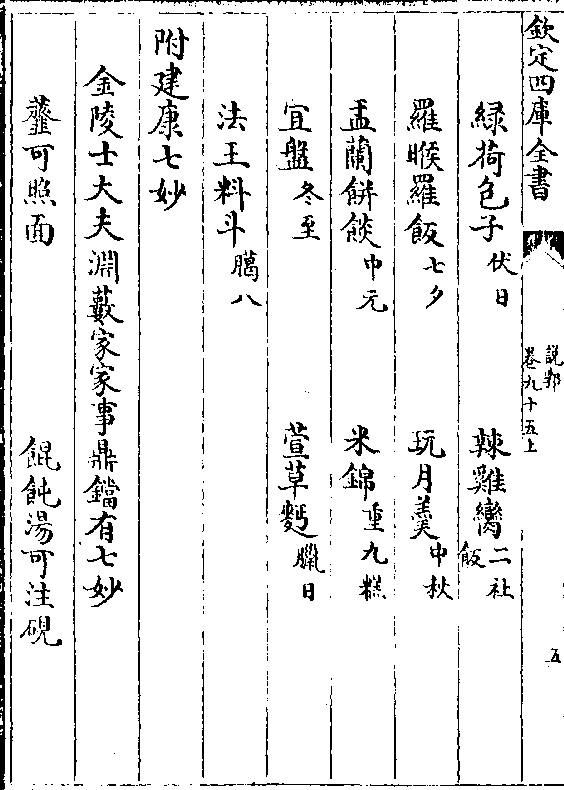 欽定四庫全書
說郛
卷九十五上
五
緑荷包子 伏日 辣雞臠 二社飯
羅睺羅飯 七夕 玩月羮 中秋
盂蘭餅餤 中元 米錦 重九糕
宜盤 冬至 萱草麫 臘日
法王料斗 臈八
附建康七妙
金陵士大夫淵藪家家事鼎鐺有七妙
虀可照面 餛飩湯可注硯